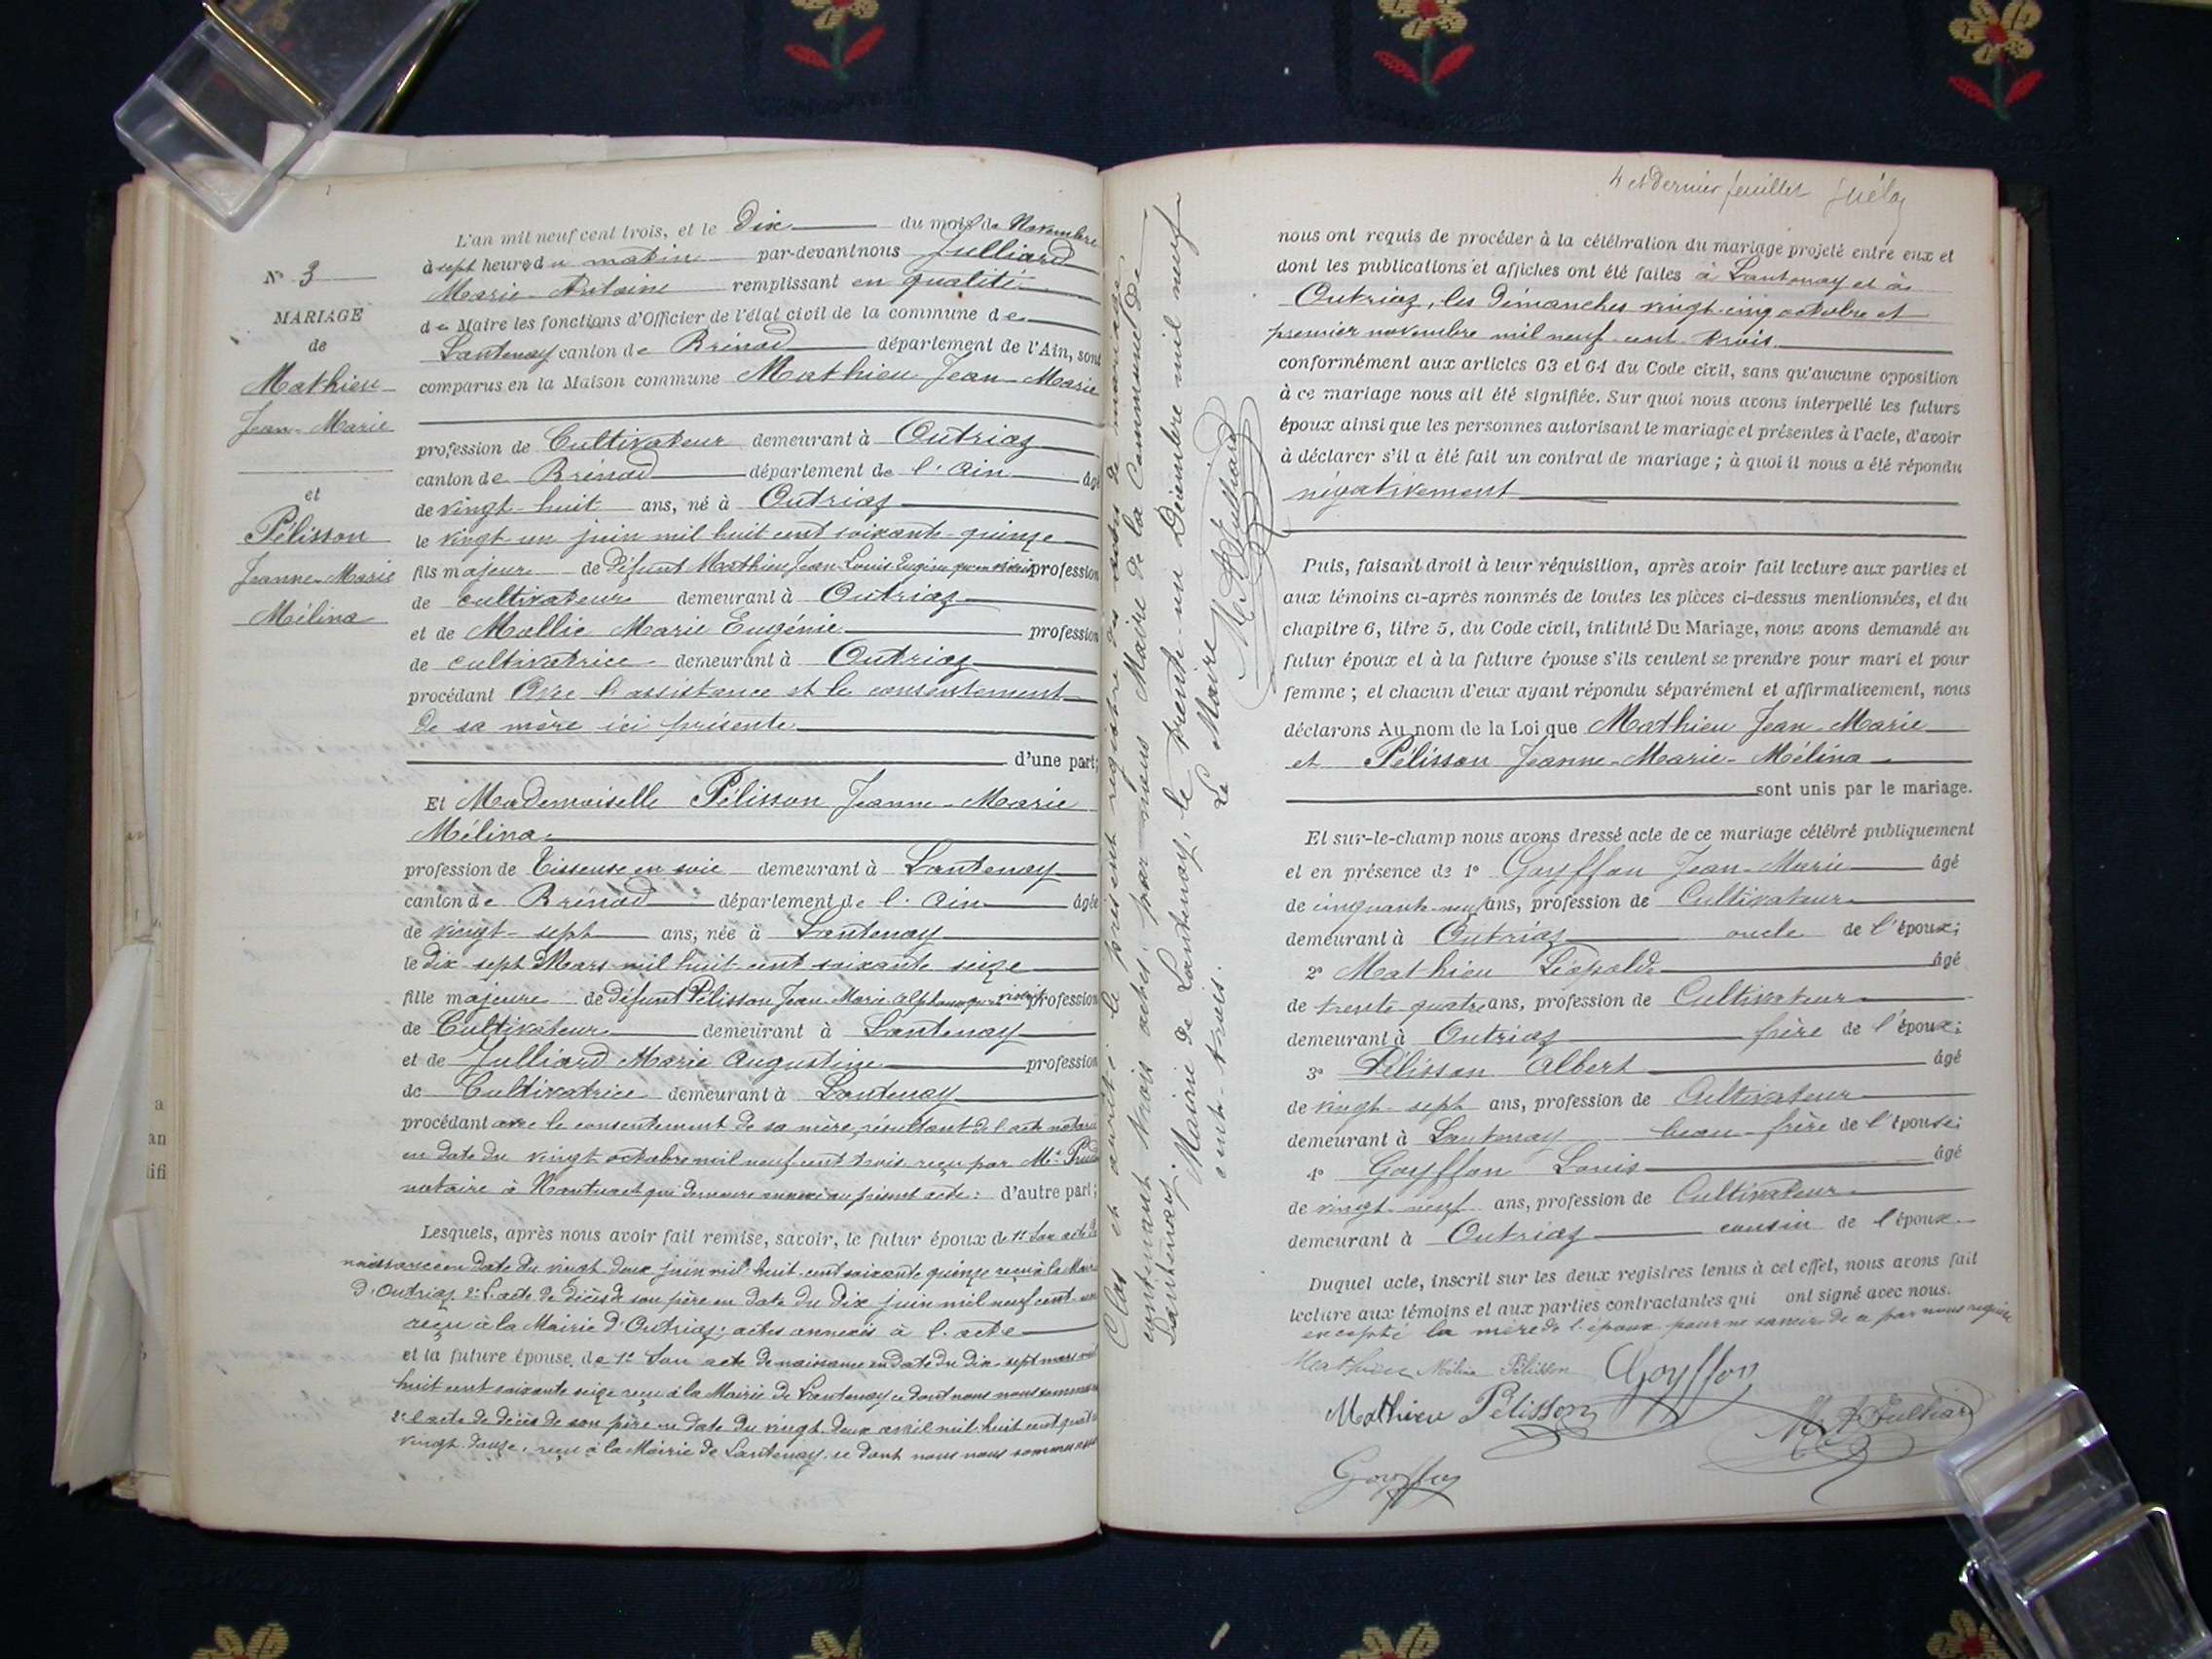 L'an mil neuf cent trois, et le Dix du mois de Novembre
à sept heures du matin par-devant nous Julliard
Marie-Antoine remplissant en qualité
de Maire les fonctions d'Officier de l'état civil de la commune de
Lantenay canton de Brénod département de l'Ain, sont
comparus en la Maison commune Mathieu Jean-Marie
N° 3
MARIAGE
de
Mathieu
Jean-Marie
et
Pélisson
Jeanne-Marie
Mélina
profession de Cultivateur demeurant à Outriaz
canton de Brénod département de l'Ain âgé
de vingt-huit ans, né à Outriaz
le vingt un juin mil huit cent soixante-quinze
fils majeur de défunt Mathieu Jean-Louis Eugène profession
de cultivateur demeurant à Outriaz
et de Mallie Marie Eugénie profession
de cultivatrice demeurant à Outriaz
procédant avec l'assistance et le consentement
de sa mère ici présente
d'une part;
Et Mademoiselle Pélisson Jeanne-Marie
Mélina
profession de Tisseuse en soie demeurant à Lantenay
canton de Brénod département de l'Ain âgée
de vingt-sept ans, née à Lantenay
le dix-sept Mars mil huit cent soixante seize
fille majeure de défunt Pélisson Jean-Marie Alphonse profession
de Cultivateur demeurant à Lantenay
et de Julliard Marie Augustine profession
de Cultivatrice demeurant à Lantenay
procédant avec le consentement de sa mère, résultant de l'acte notarié
en date du vingt octobre mil neuf cent trois reçu par Me
notaire à Nantua et qui demeure annexé au présent acte: d'autre part;
Lesquels, après nous avoir fait remise, savoir, le futur époux de 1° Son acte de
naissance en date du vingt-deux juin mil huit cent soixante quinze reçu à la Mairie
d'Outriaz 2° L'acte de décès de son père en date du dix juin mil neuf cent
reçu à la Mairie d'Outriaz; actes annexés à l'acte
et la future épouse de 1° Son acte de naissance en date du dix-sept mars mil
huit cent soixante seize reçu à la Mairie de Lantenay ce dont nous nous sommes
2° l'acte de décès de son père en date du vingt-deux avril mil huit cent quatre
vingt-douze, reçu à la Mairie de Lantenay ce dont nous nous sommes
Clos et arrêté le présent registre des actes de mariage
contenant trois actes, par nous Maire de la Commune de
Lantenay
Mairie de Lantenay, le trente-un Décembre mil neuf
cent-trois.
Le Maire
M A Julliard
4 et dernier feuillet
nous ont requis de procéder à la célébration du mariage projeté entre eux et
dont les publications et affiches ont été faites à Lantenay et à
Outriaz, les dimanches vingt-cinq octobre et
premier novembre mil neuf cent trois
conformément aux articles 63 et 64 du Code civil, sans qu'aucune opposition
à ce mariage nous ait été signifiée. Sur quoi nous avons interpellé les futurs
époux ainsi que les personnes autorisant le mariage et présentes à l'acte, d'avoir
à déclarer s'il a été fait un contrat de mariage; à quoi il nous a été répondu
négativement
Puis, faisant droit à leur réquisition, après avoir fait lecture aux parties et
aux témoins ci-après nommés de toutes les pièces ci-dessus mentionnées, et du
chapitre 6, titre 5, du Code civil, intitulé Du Mariage, nous avons demandé au
futur époux et à la future épouse s'ils veulent se prendre pour mari et pour
femme; et chacun d'eux ayant répondu séparément et affirmativement, nous
déclarons Au nom de la Loi que Mathieu Jean-Marie
et Pélisson Jeanne-Marie-Mélina
sont unis par le mariage.
Et sur-le-champ nous avons dressé acte de ce mariage célébré publiquement
et en présence de 1° Goyffon Jean-Marie âgé
de cinquante-neuf ans, profession de Cultivateur
demeurant à Outriaz oncle de l'époux;
2° Mathieu Léopold âgé
de trente quatre ans, profession de Cultivateur
demeurant à Outriaz frère de l'époux;
3° Pélisson Albert âgé
de vingt-sept ans, profession de Cultivateur
demeurant à Lantenay beau-frère de l'épouse;
4° Goyffon Louis âgé
de vingt-neuf ans, profession de Cultivateur
demeurant à Outriaz cousin de l'époux
Duquel acte, inscrit sur les deux registres tenus à cet effet, nous avons fait
lecture aux témoins et aux parties contractantes qui ont signé avec nous.
excepté la mère de l'époux pour ne savoir de ce par nous requise
Mathieu Mélina Pélisson Goyffon
Mathieu Pélisson M A Julliard
Goyffon